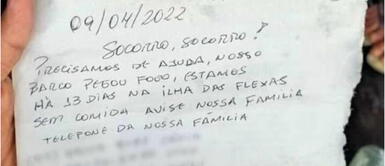 09/04/2022
SOCORRO, SOCORRO!
PRECISAMOS DE AJUDA, NOSSO
BARCO PEGOU FOGO, ESTAMOS
HÀ 13 DIAS NA ILHA DAS FLEXAS
SEM COMIDA AVISE NOSSA FAMILIA
TELEFONE DA NOSSA FAMILIA